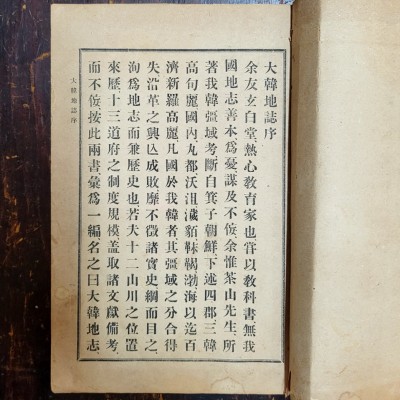 大韓地誌序
余友玄白堂熱心教育家也嘗以教科書無我
國地志善本爲憂謀及不佞余惟茶山先生所
著我韓疆域考斷自箕子朝鮮下述四郡三韓
高句麗國內丸都沃沮濊貊靺鞨渤海以迄百
濟新羅高麗凡國於我韓者其疆域之分合得
失沿革之興亡成敗靡不徵諸實史綱而目之
洵爲地志而兼歷史也若夫十二山川之位置
來歷十三道府之制度規模蓋取諸文獻備考
而不佞按此兩書彙爲一編名之曰大韓地志
大韓地誌序